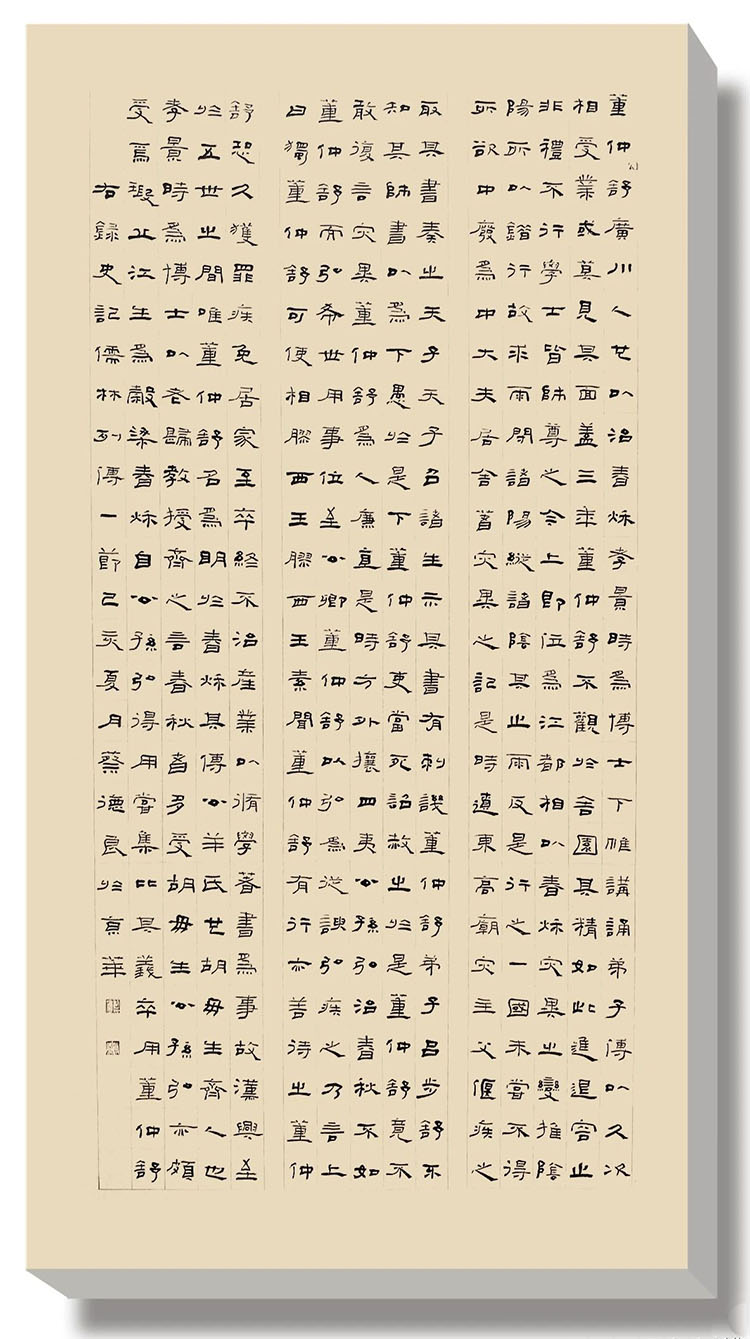 董仲舒廣川人也以治春秋孝景時為博士下帷講誦弟子傳以久次
相受業或莫見其面蓋三年董仲舒不觀於舍園其精如此進退容止
非禮不行學士皆師尊之今上即位為江都相以春秋灾異之變推陰
陽所以錯行故求雨閉諸陽縱諸陰其止雨反是行之一國未嘗不得
所欲中廢為中大夫居舍著灾異之記是時遼東高廟灾主父偃疾之
取其書奏之天子天子召諸生示其書有刺譏董仲舒弟子呂步舒不
知其師書以為下愚於是下董仲舒吏當死詔赦之於是董仲舒竟不
敢復言灾異董仲舒為人廉直是時方外攘四夷公孫弘治春秋不如
董仲舒而弘希世用事位至公卿董仲舒以弘為從諛弘疾之乃言上
曰獨董仲舒可使相膠西王膠西王素聞董仲舒有行亦善待之董仲
舒恐久獲罪疾免居家至卒終不治產業以脩學著書為事故漢興至
於五世之間唯董仲舒名為明於春秋其傳公羊氏也胡毋生齊人也
孝景時為博士以老歸教授齊之言春秋者多受胡毋生公孫弘亦頗
受焉瑕丘江生為穀梁春秋自公孫弘得用嘗集比其義卒用董仲舒
右錄史記儒林列傳一節己亥夏月蔡德良於京華